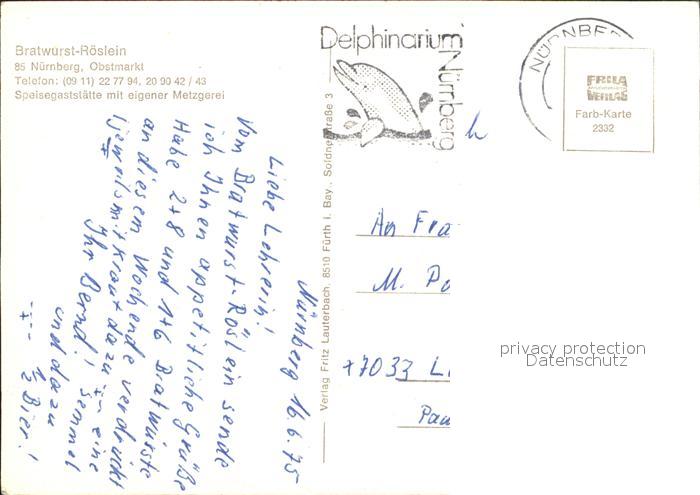 Bratwurst-Röslein
85 Nürnberg, Obstmarkt
Telefon: (09 11) 22 77 94, 20 90 42 / 43
Speisegaststätte mit eigener Metzgerei
Delphinarium
Nürnberg
NÜRNBE
FRILA
VERLAG
Farb-Karte
2332
Verlag Fritz Lauterbach, 8510 Fürth i. Bay., Soldnerstraße 3
Nürnberg 16.6.75
Liebe Lehrerin!
Vom Bratwurst-Röslein sende
ich Ihnen appetitliche Grüße
Habe 2+8 und 1+6 Bratwürste
an diesem Wochenende verdrückt
(jeweils mit Kraut dazu + eine
Ihr Bernd! Semmel
und dazu
½ Bier!
h
An Fra
M. Po
7033 L
Pau
privacy protection
Datenschutz